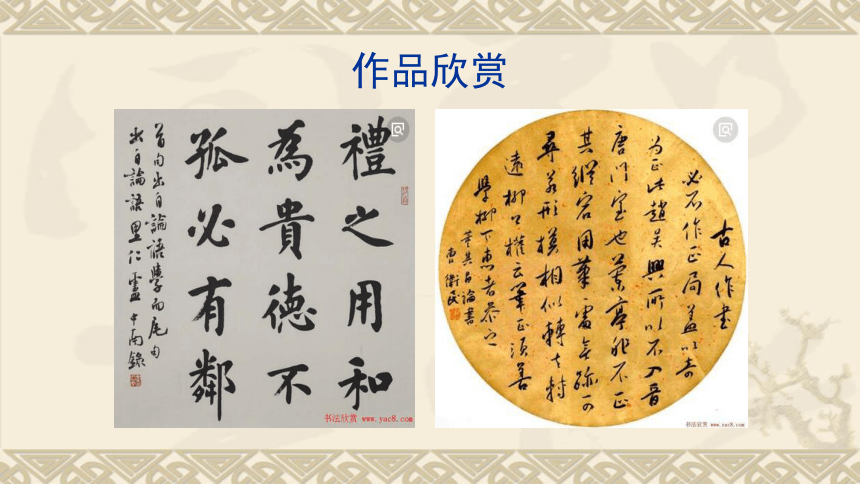 作品欣赏
禮之用和
為貴德不
孤必有鄰
首句出自論語學而尾句
出自論語里仁 盧中南錄
书法欣赏 www.yac8.com
古人作書
必不作正局蓋以奇
为正此趙吴興所以不入晉
唐门室也蘭亭非不正
其縱宕用筆處無跡可
尋若形模相似轉去轉
遠柳公權云筆正須善
學柳下惠者參之
董其昌論書
曹衛民
书法欣赏 www.yac8.com